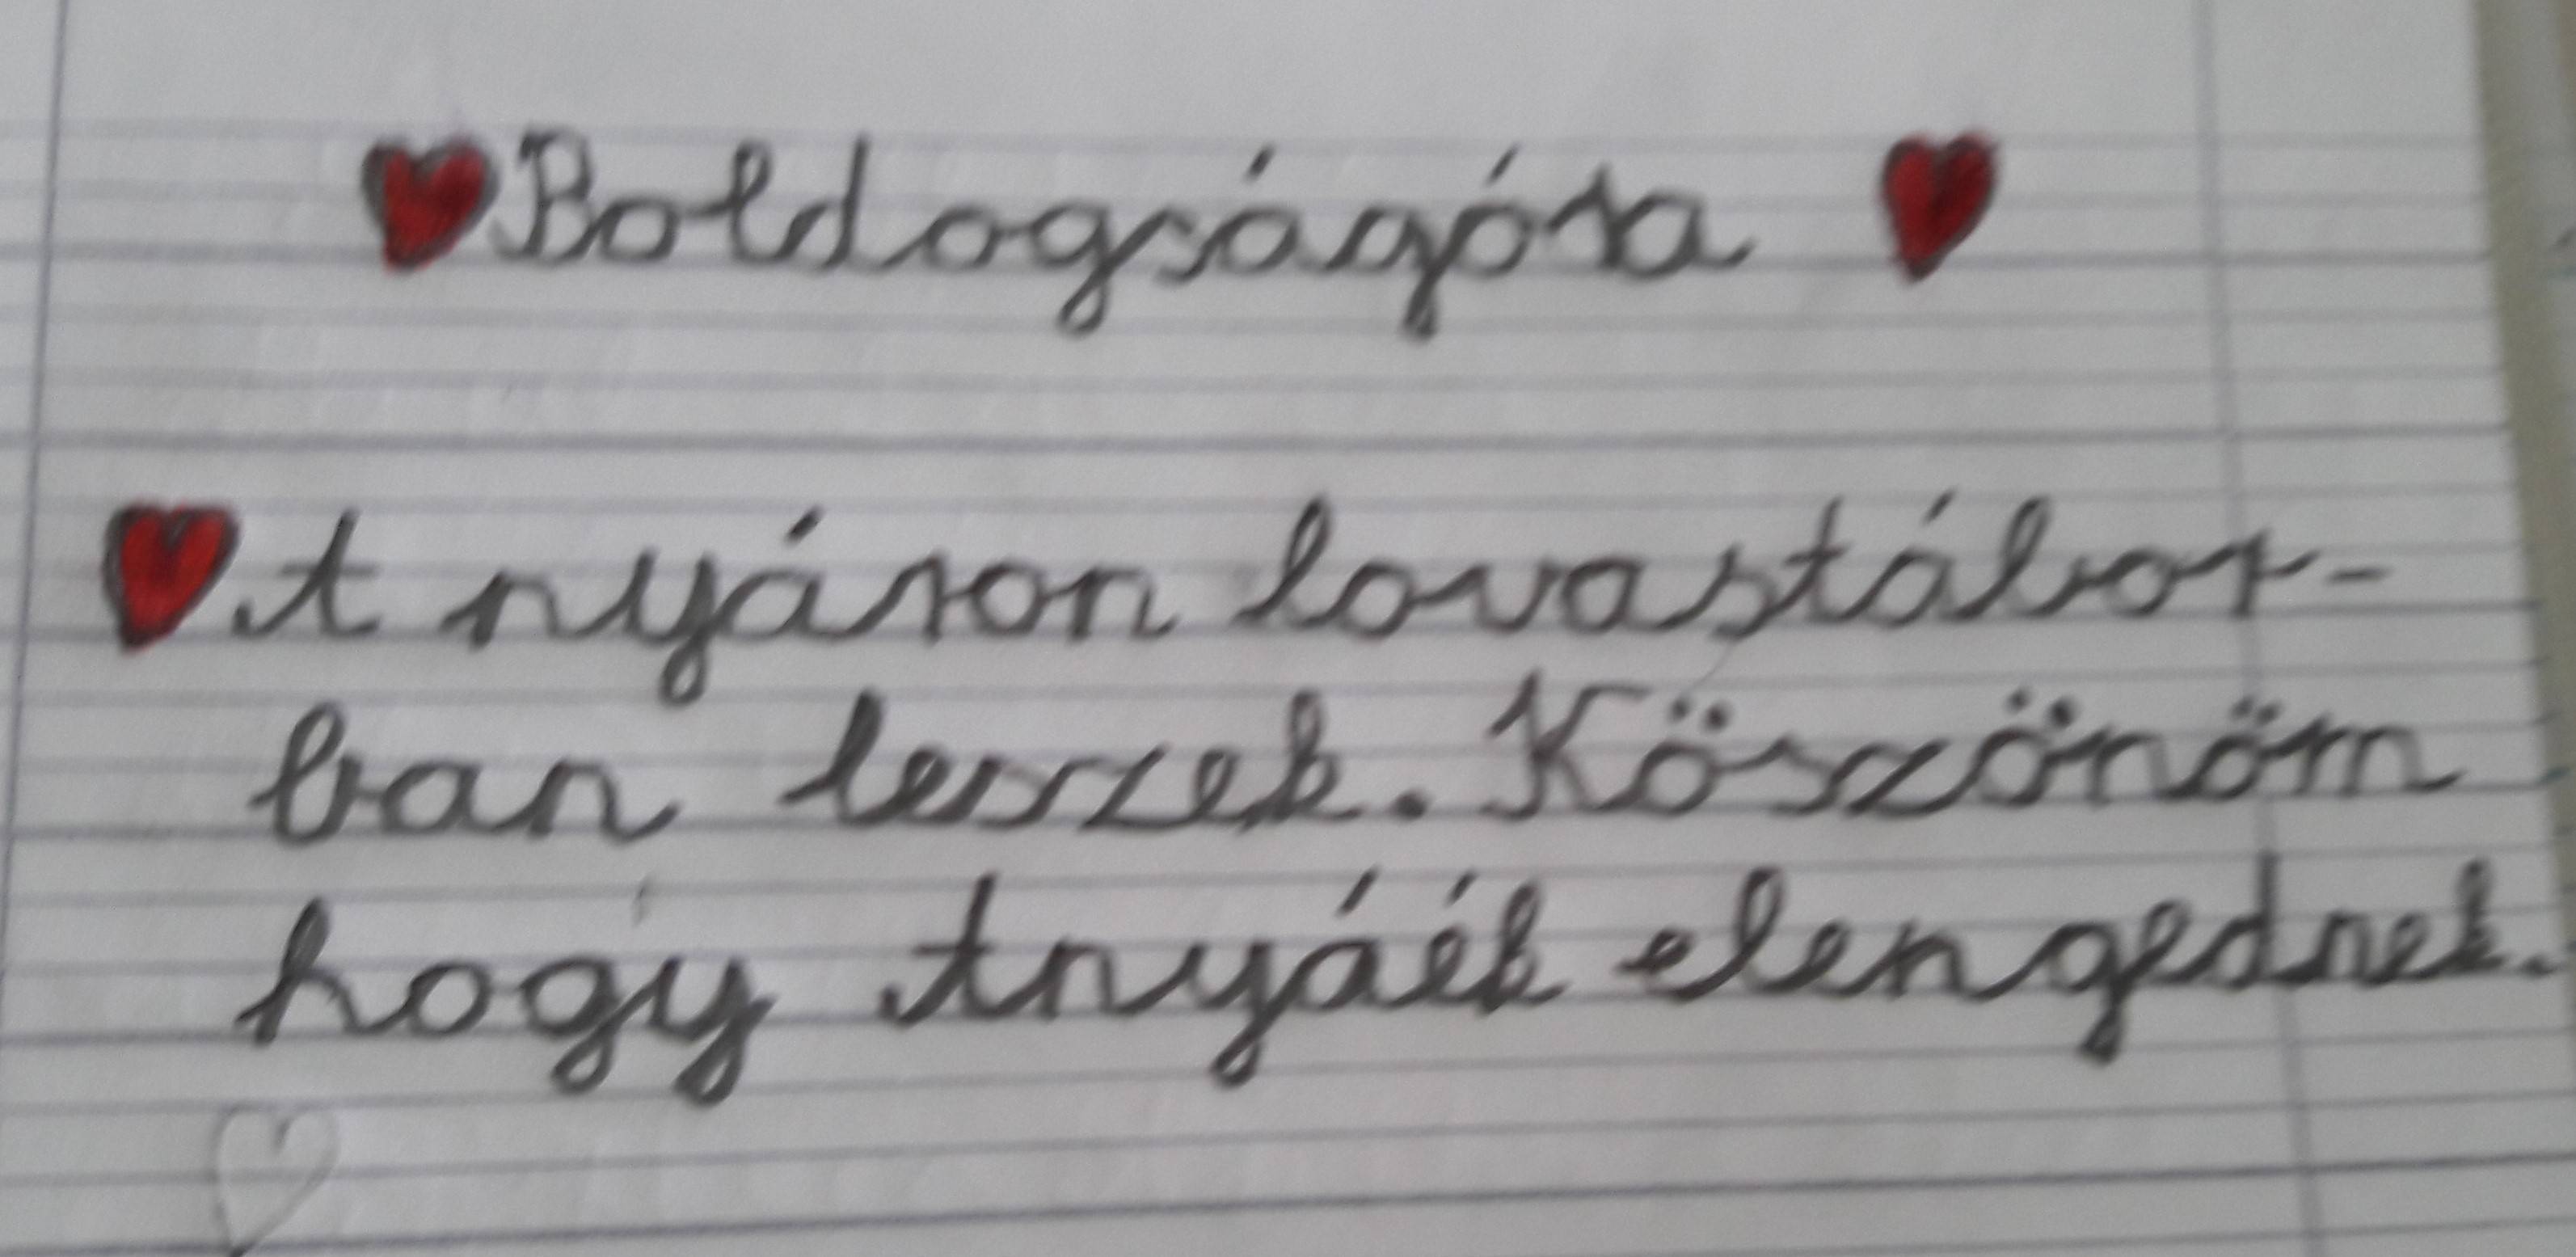 Boldogságóra
A nyáron lovastábor-
ban leszek. Köszönöm
hogy Anyáék elengednek.